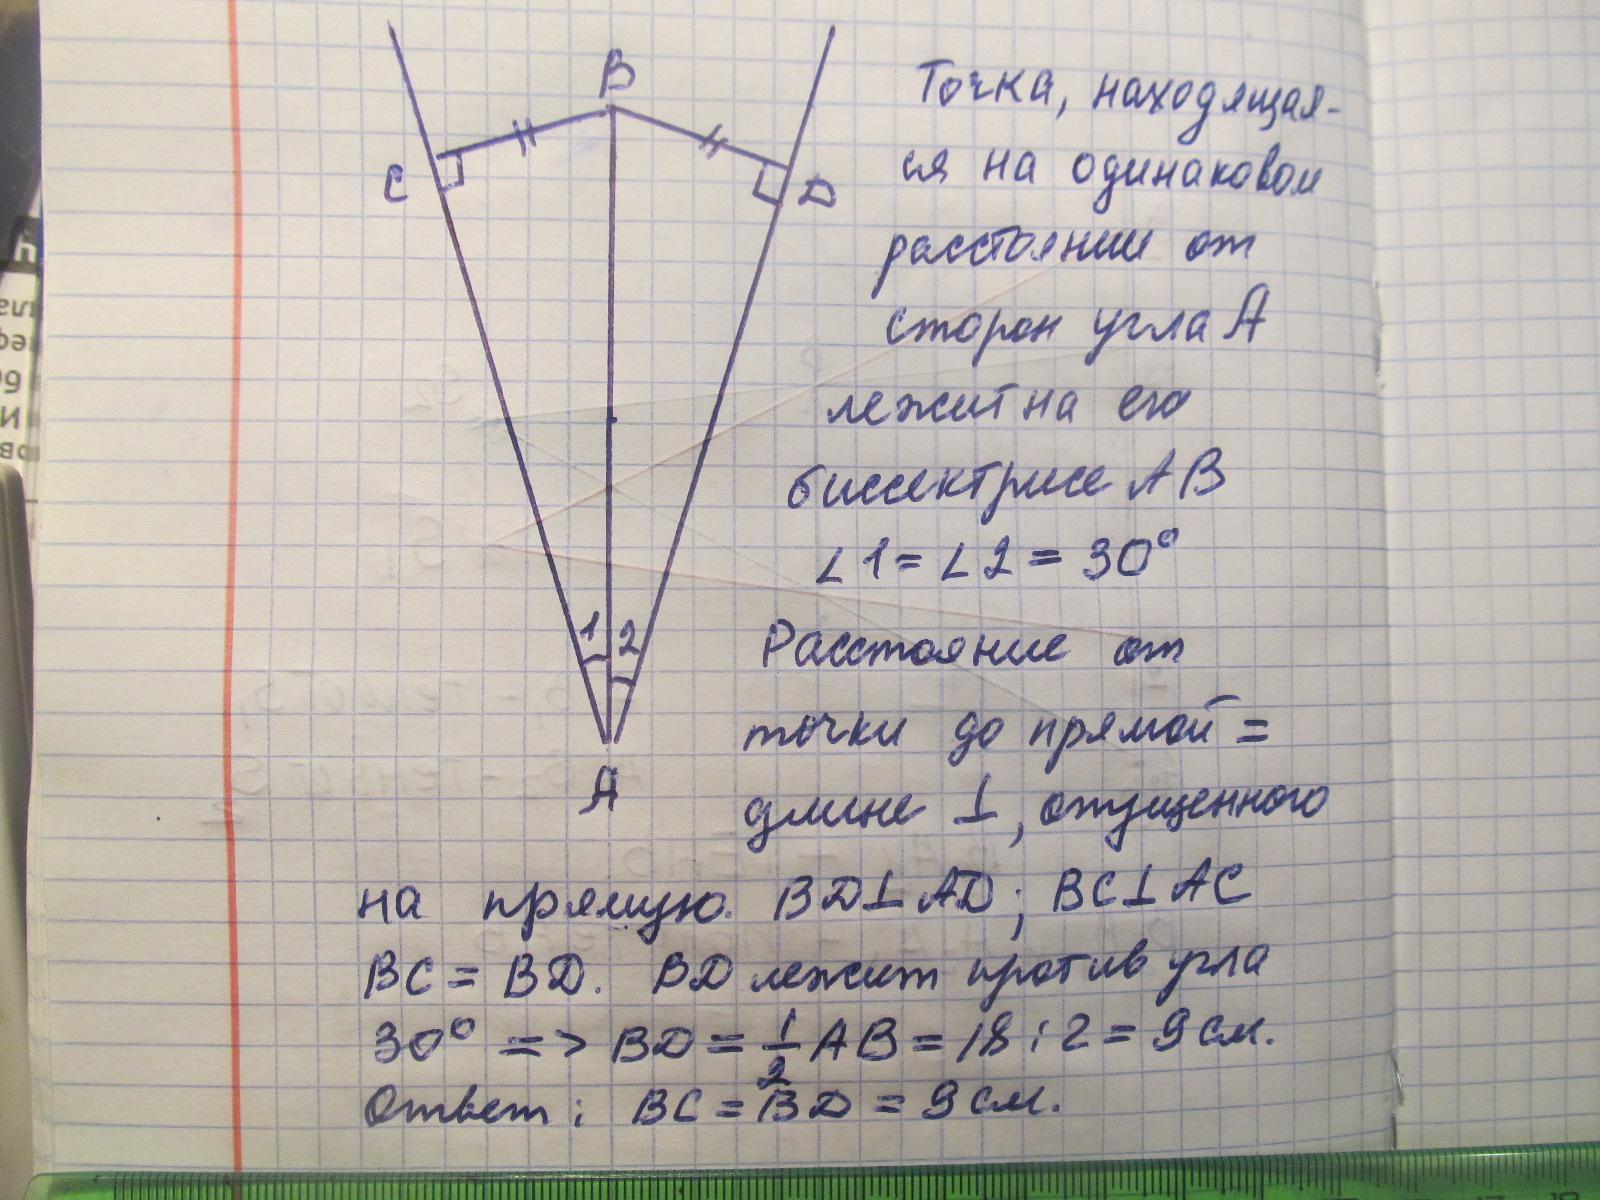 B
C
D
1
2
A
Точка, находящая-
ся на одинаковом
расстоянии от
сторон угла А
лежит на его
биссектрисе АВ
∠1 = ∠2 = 30°
Расстояние от
точки до прямой =
длине ⊥, опущенного
на прямую. BD⊥AD; BC⊥AC
BC = BD. BD лежит против угла
30° => BD = 1/2 AB = 18 : 2 = 9 см.
Ответ: BC = BD = 9 см.